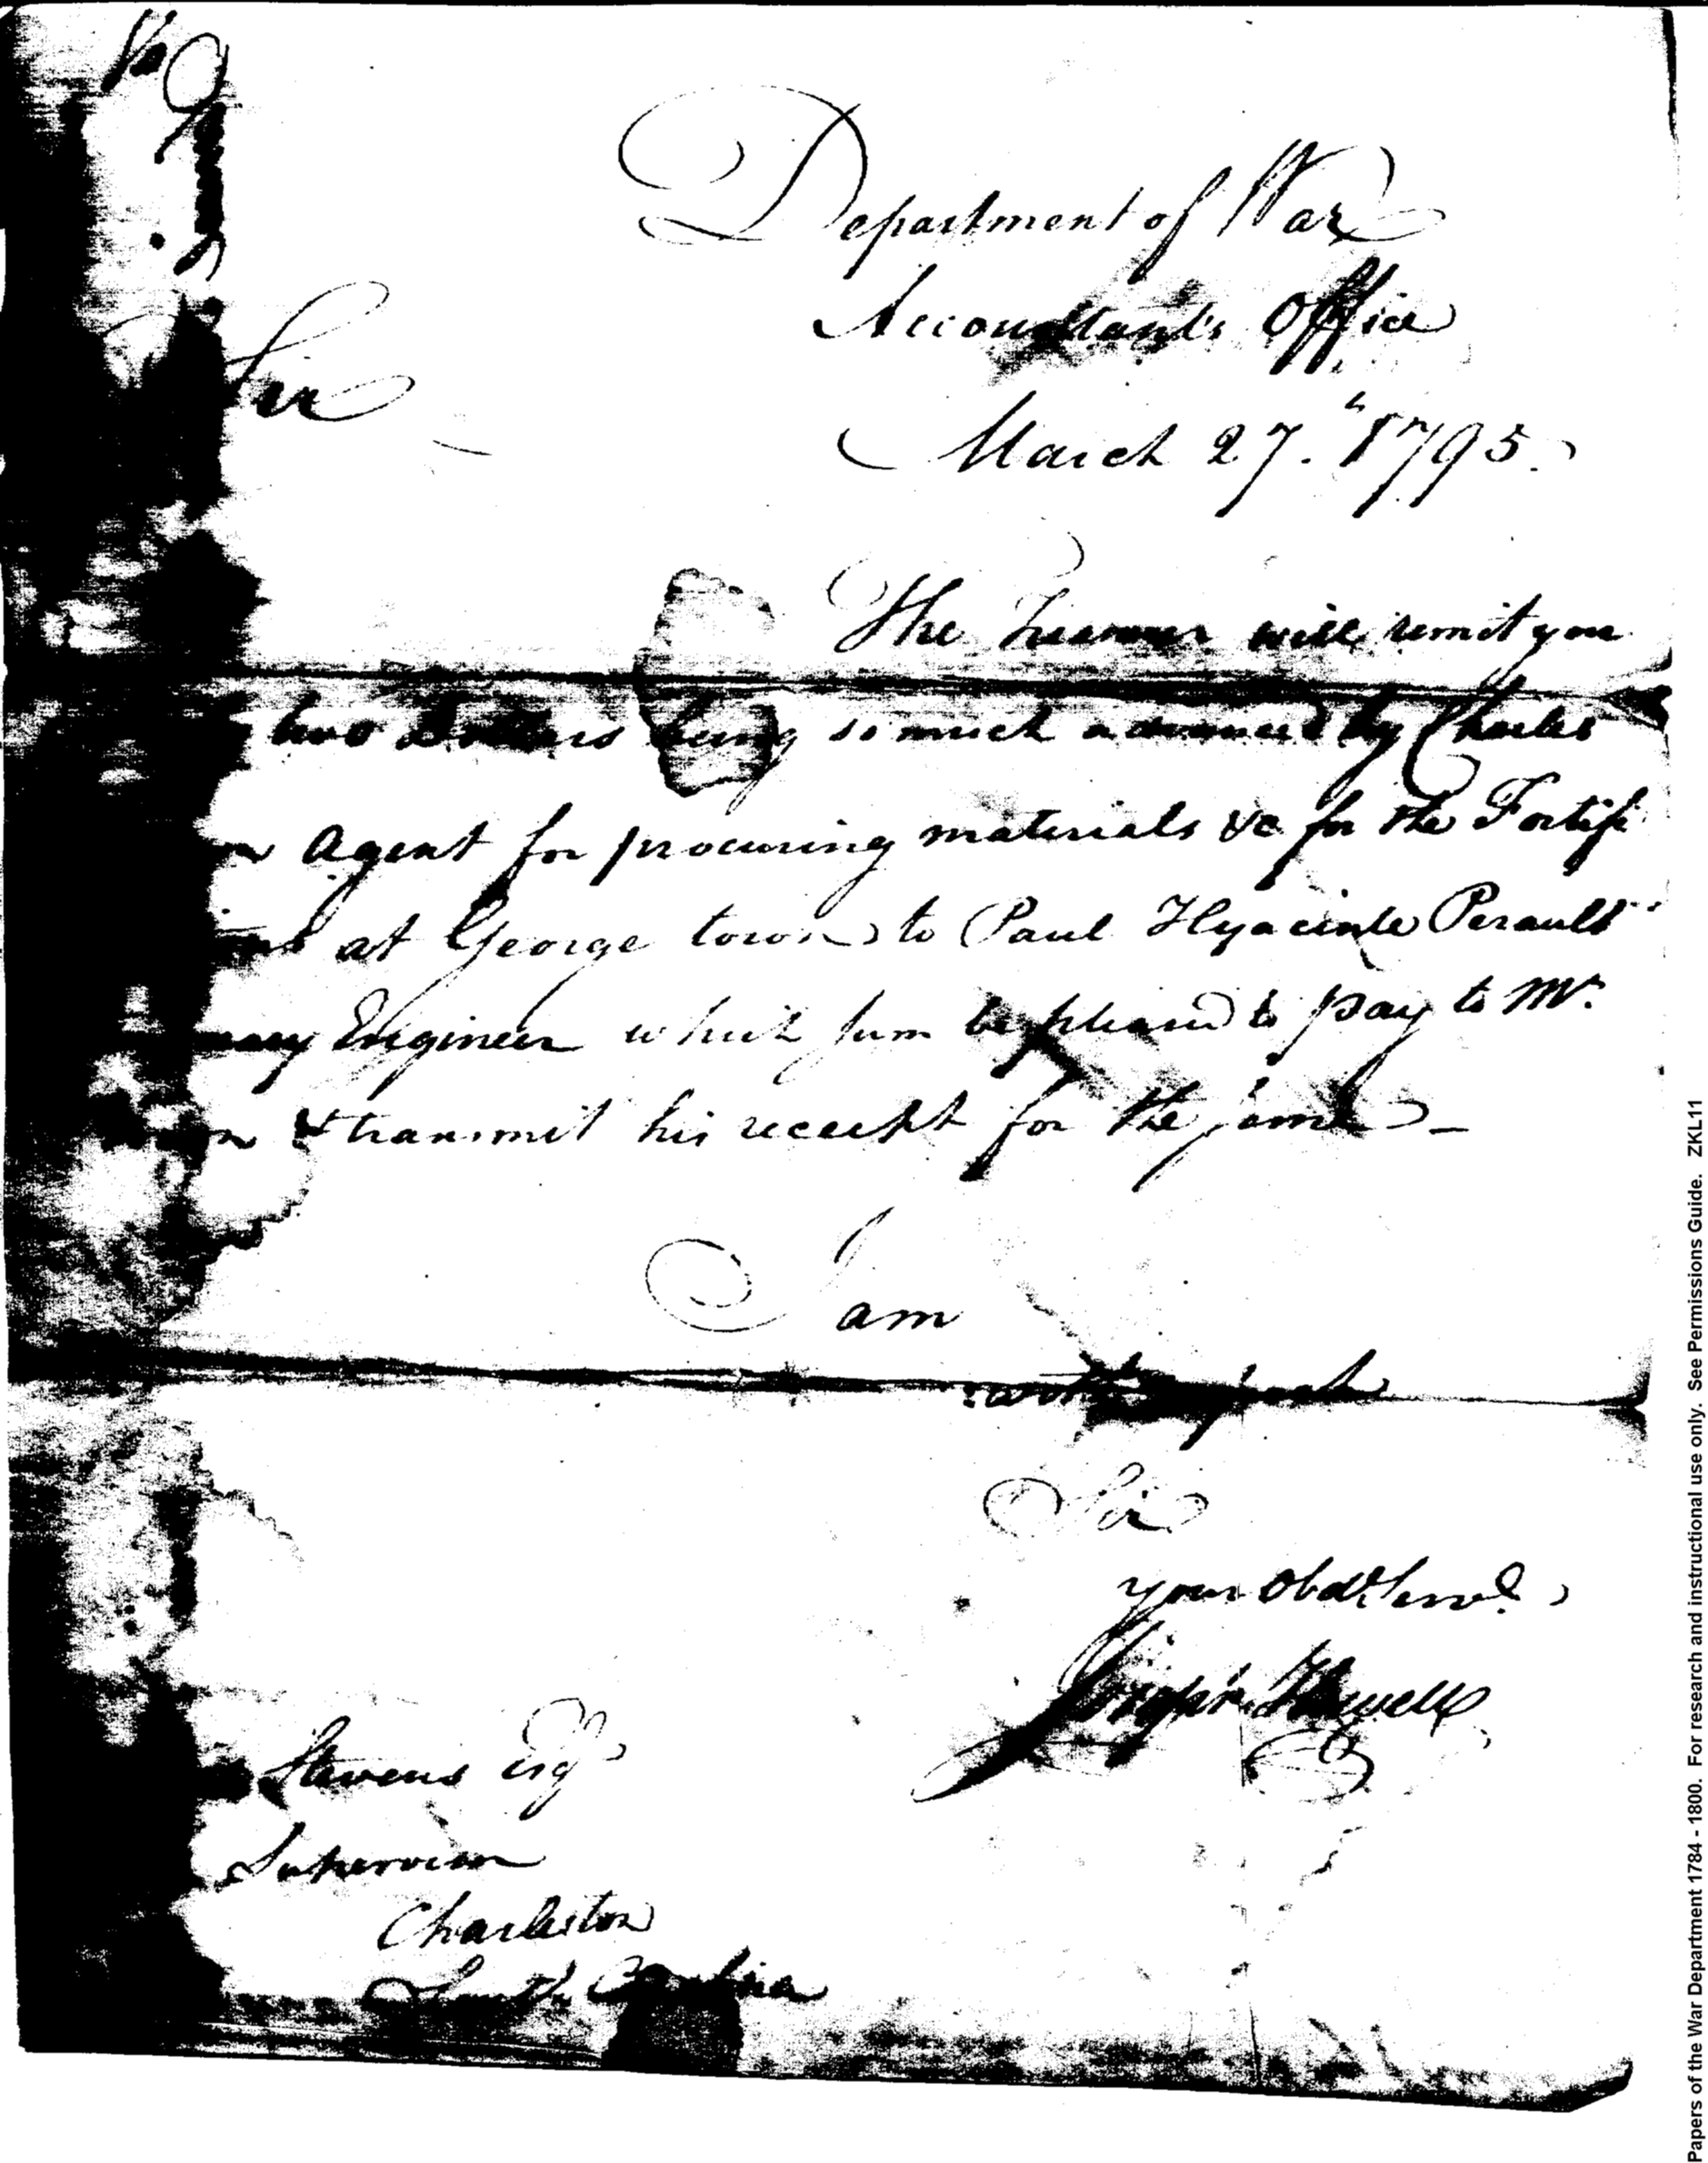 Department of War
Accountant's Office
March 27.th 1795.
Sir
The Treasurer will remit you
two Dollars being so much advanced by Charles
Agent for procuring materials &c for the Fortifi
at George town to Paul Hyacinte Perault
Engineer which sum be pleased to pay to Mr.
& transmit his receipt for the same
I am
with respect
Sir
your Obdt Servt
Joseph Howell
Stevens Esqr
Supervisor
Charleston
South Carolina
Papers of the War Department 1784 - 1800. For research and instructional use only. See Permissions Guide. ZKL11